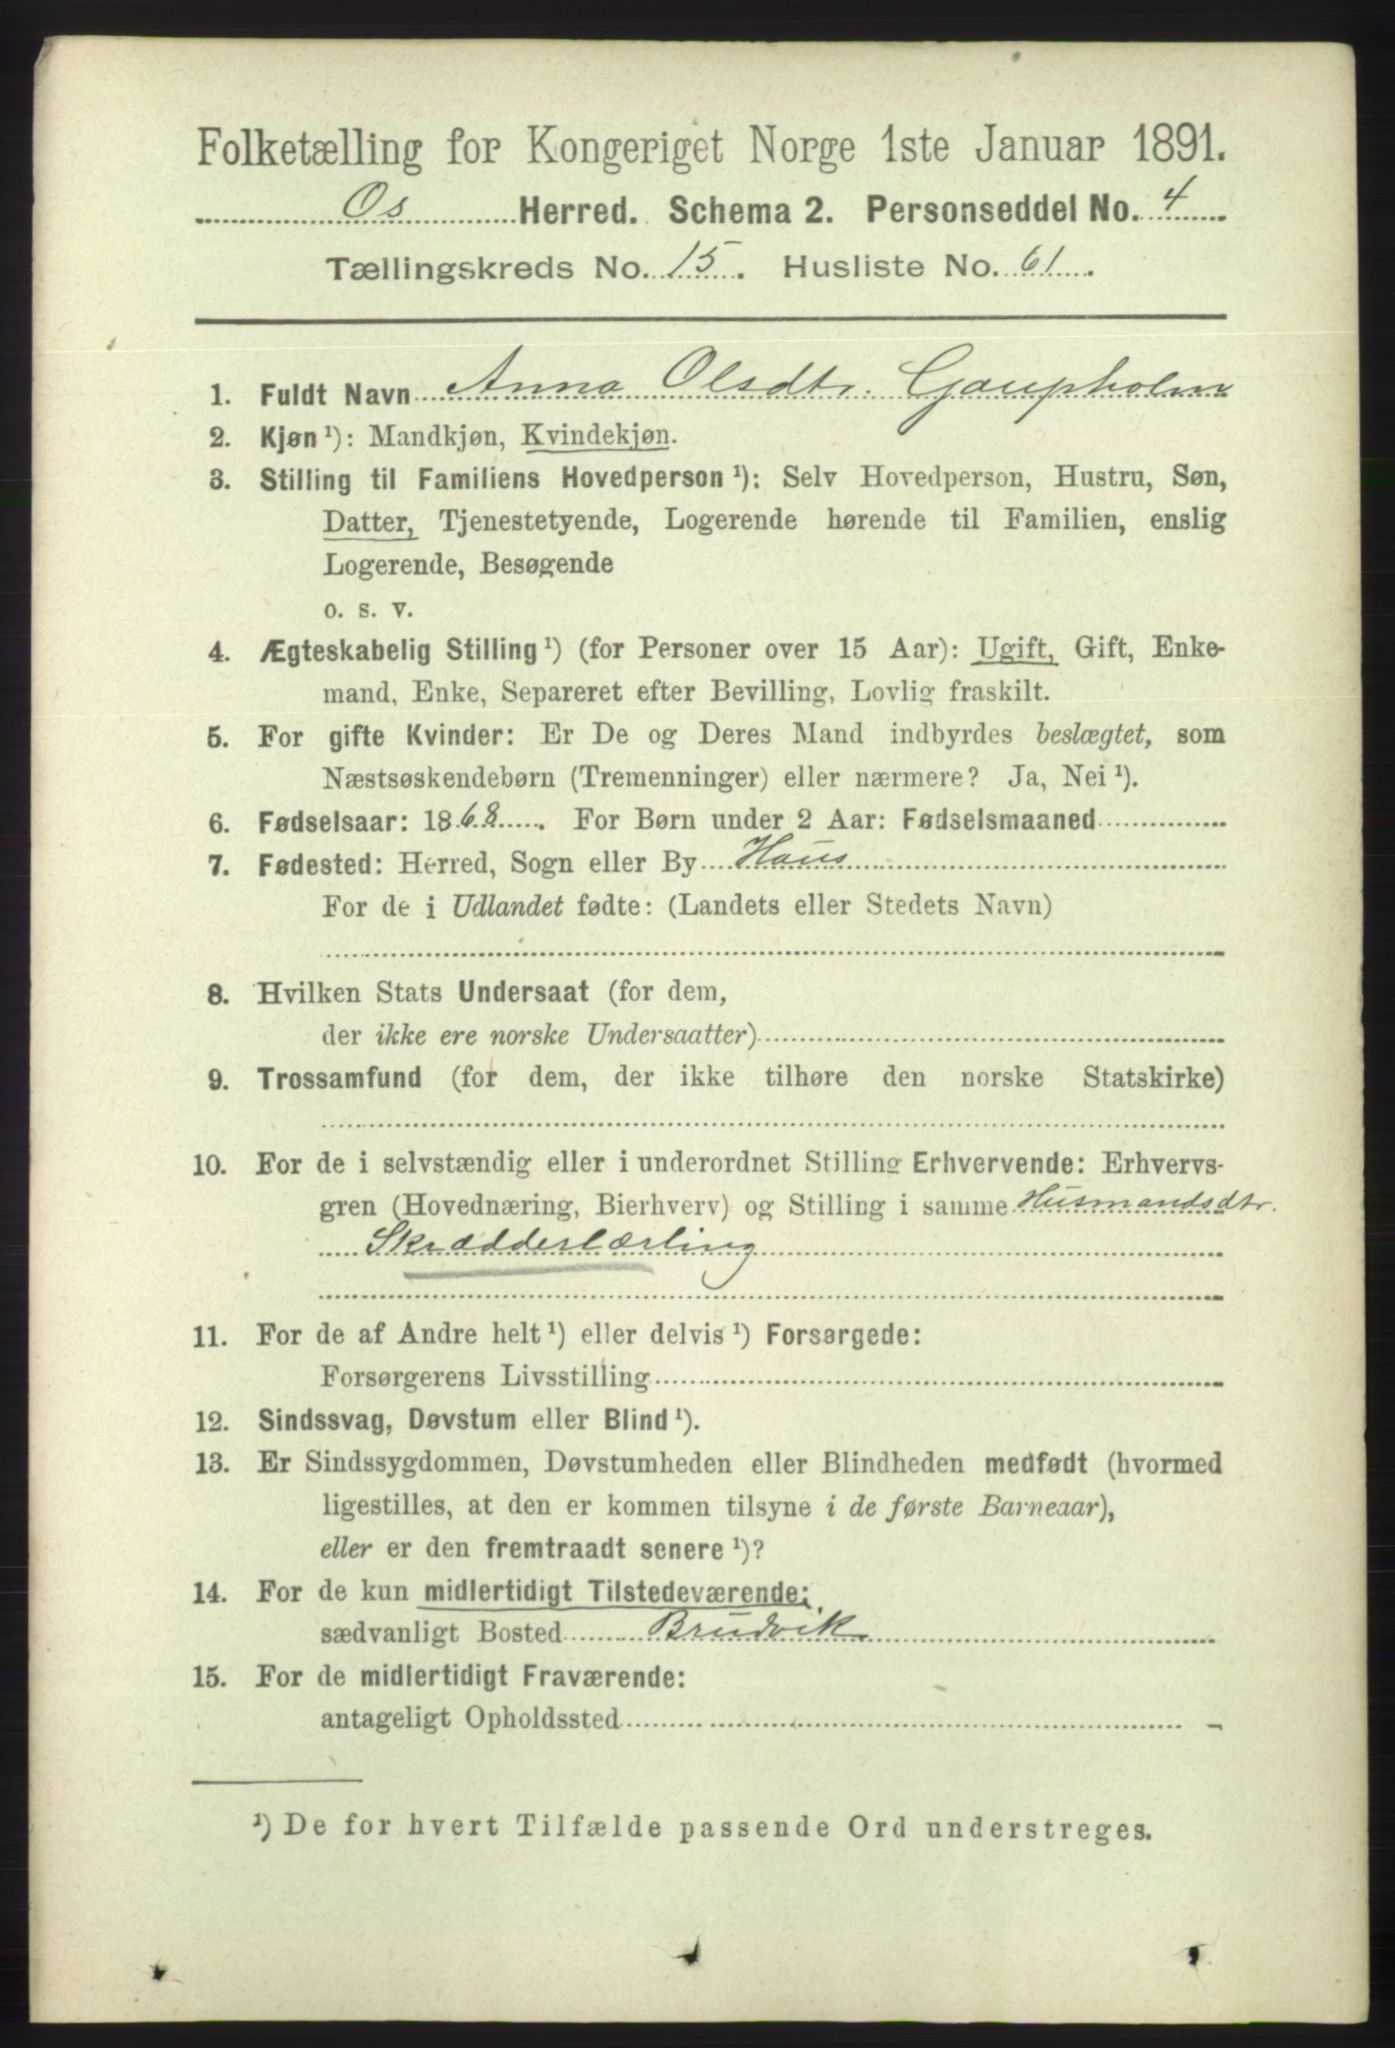 Folketælling for Kongeriget Norge 1ste Januar 1891.
Os Herred. Schema 2. Personseddel No. 4
Tællingskreds No. 15. Husliste No. 61.
1. Fuldt Navn Anna Olsdtr. Gaupholm
2. Kjøn ¹): Mandkjøn, Kvindekjøn.
3. Stilling til Familiens Hovedperson ¹): Selv Hovedperson, Hustru, Søn,
Datter, Tjenestetyende, Logerende hørende til Familien, enslig
Logerende, Besøgende
o. s. v.
4. Ægteskabelig Stilling ¹) (for Personer over 15 Aar): Ugift, Gift, Enke-
mand, Enke, Separeret efter Bevilling, Lovlig fraskilt.
5. For gifte Kvinder: Er De og Deres Mand indbyrdes beslægtet, som
Næstsøskendebørn (Tremenninger) eller nærmere? Ja, Nei ¹).
6. Fødselsaar: 1868. For Børn under 2 Aar: Fødselsmaaned
7. Fødested: Herred, Sogn eller By Haus
For de i Udlandet fødte: (Landets eller Stedets Navn)
8. Hvilken Stats Undersaat (for dem,
der ikke ere norske Undersaatter)
9. Trossamfund (for dem, der ikke tilhøre den norske Statskirke)
10. For de i selvstændig eller i underordnet Stilling Erhvervende: Erhvervs-
gren (Hovednæring, Bierhverv) og Stilling i samme Husmandsdtr.
Skrædderlærling
11. For de af Andre helt ¹) eller delvis ¹) Forsørgede:
Forsørgerens Livsstilling
12. Sindssvag, Døvstum eller Blind ¹).
13. Er Sindssygdommen, Døvstumheden eller Blindheden medfødt (hvormed
ligestilles, at den er kommen tilsyne i de første Barneaar),
eller er den fremtraadt senere ¹)?
14. For de kun midlertidigt Tilstedeværende:
sædvanligt Bosted Brudvik
15. For de midlertidigt Fraværende:
antageligt Opholdssted
¹) De for hvert Tilfælde passende Ord understreges.